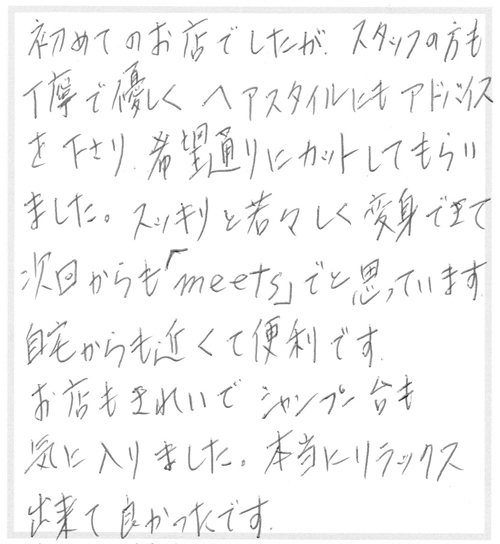 初めてのお店でしたが、スタッフの方も
丁寧で優しく ヘアスタイルにもアドバイス
を下さり、希望通りにカットしてもらい
ました。スッキリと若々しく変身できて
次回からも「meets」でと思っています
自宅からも近くて便利です。
お店もきれいで シャンプー台も
気に入りました。本当にリラックス
出来て良かったです。